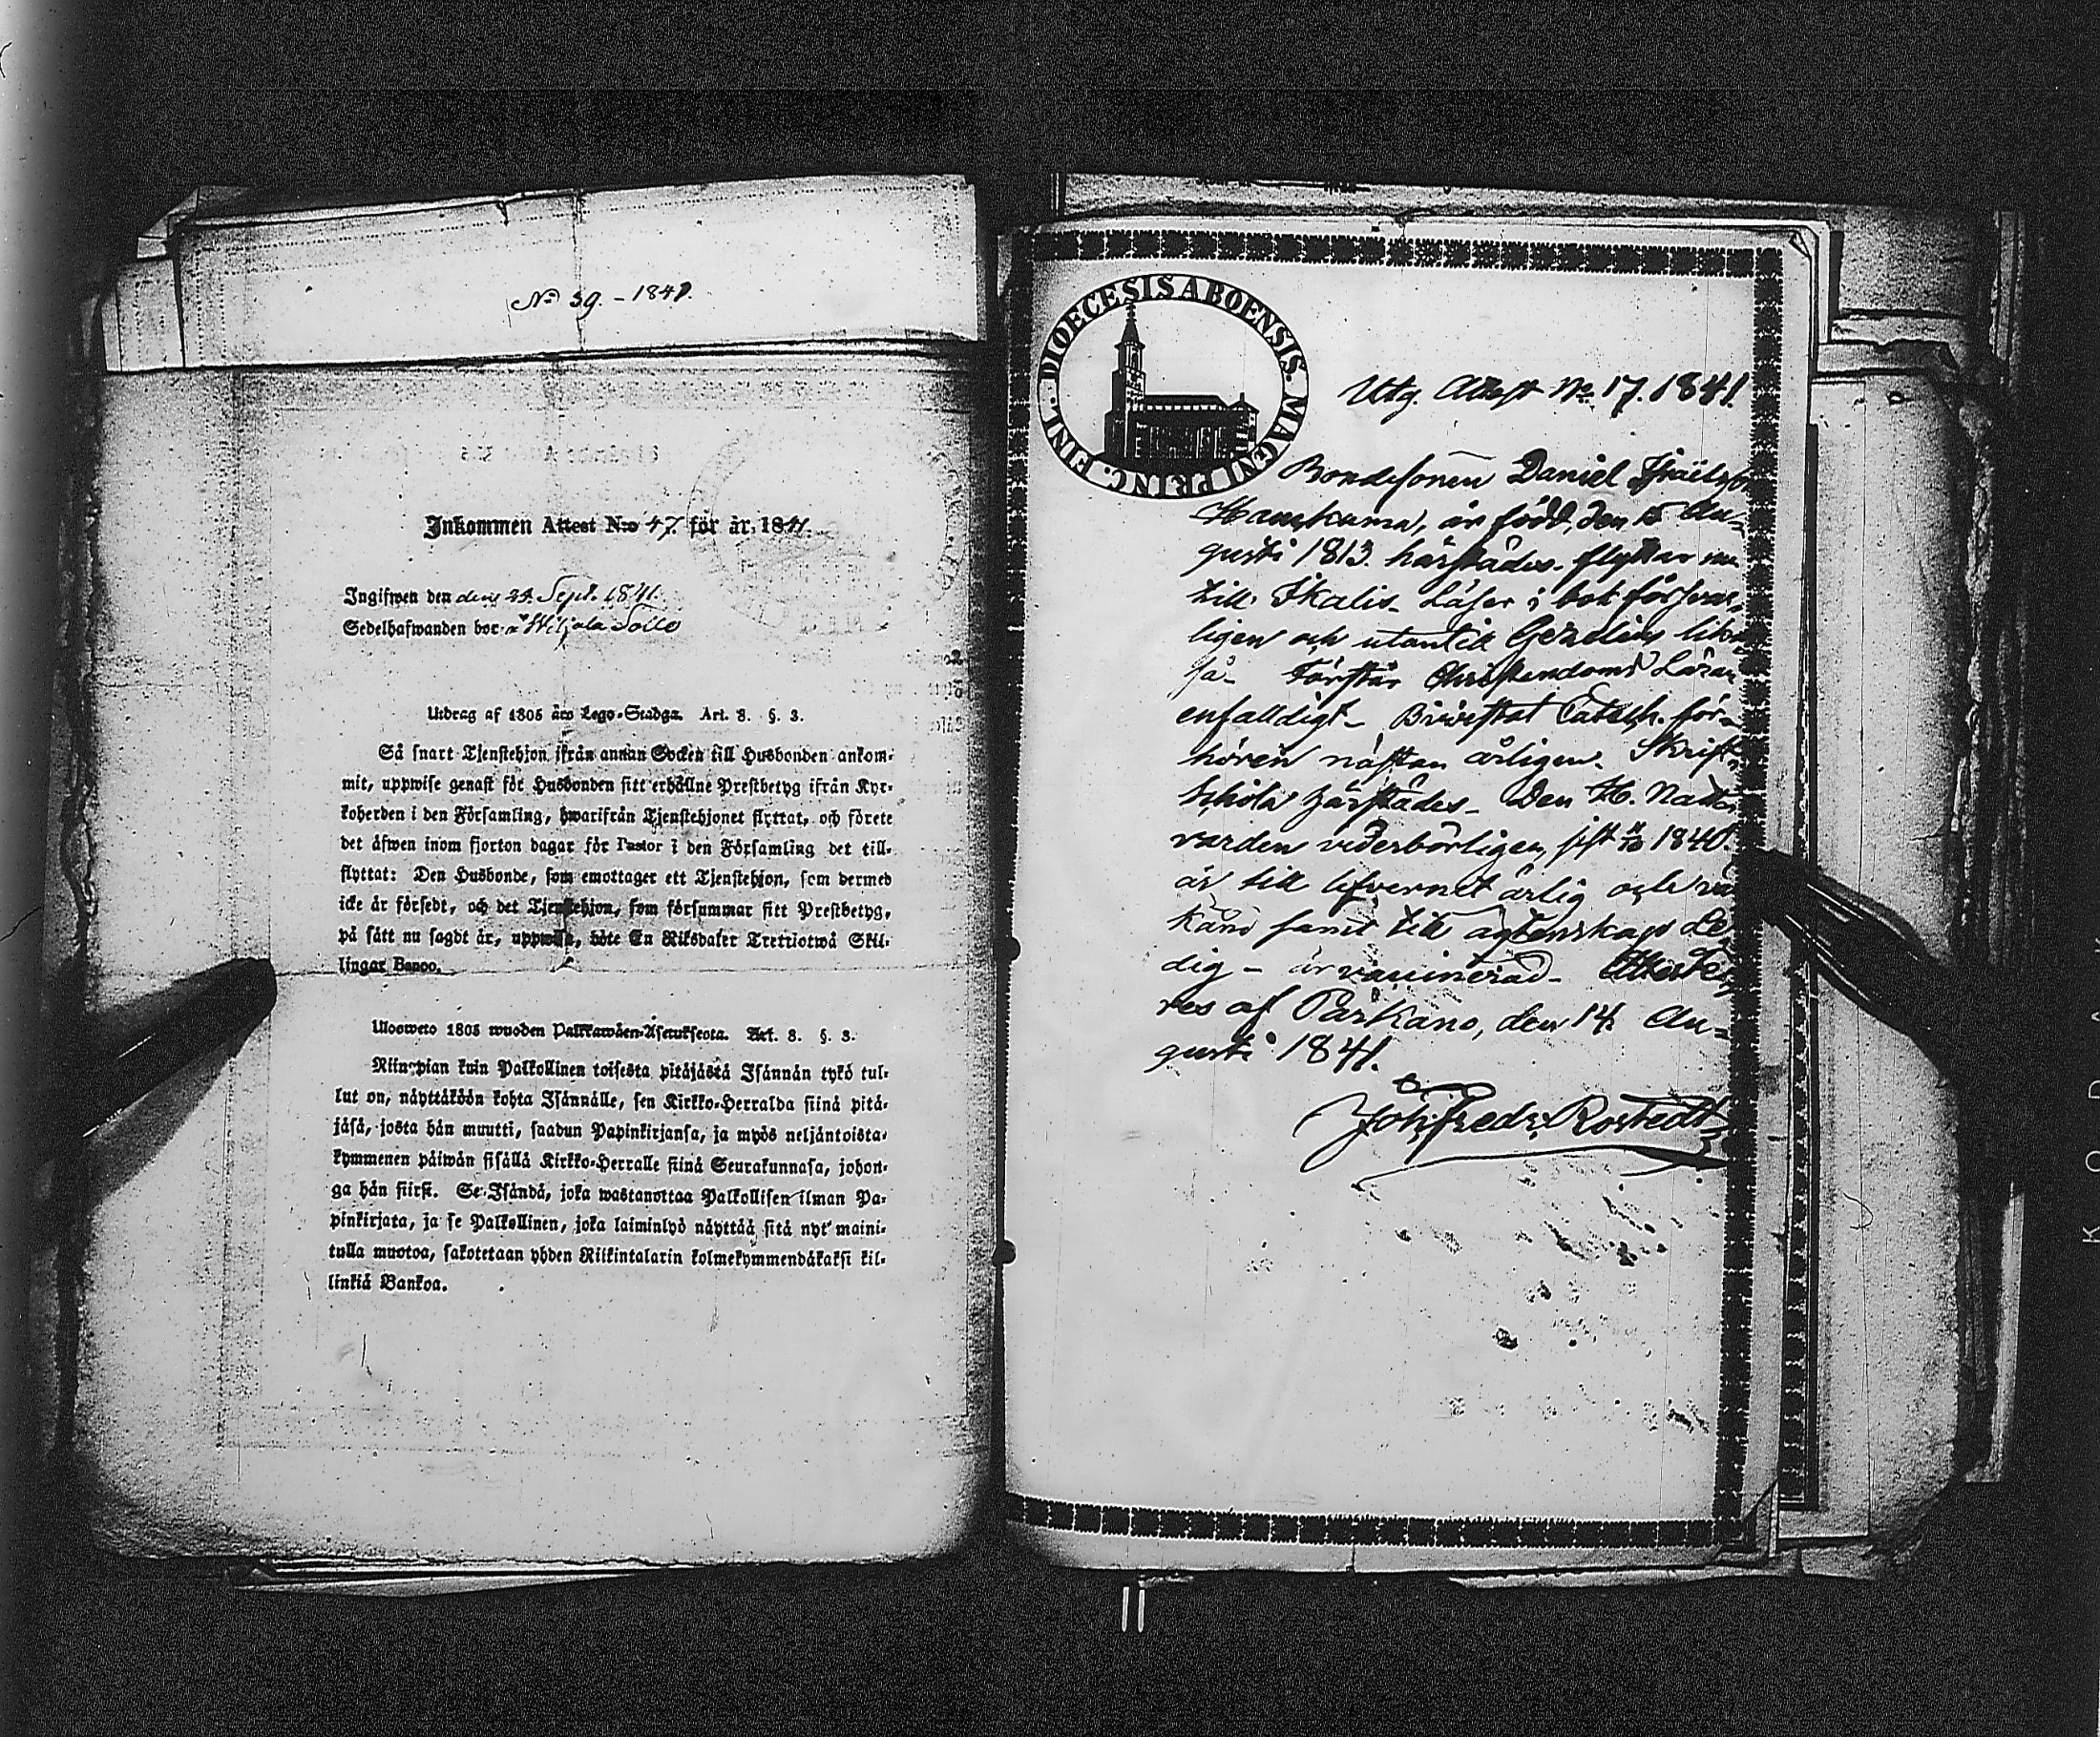 No 39. - 1841.
Inkommen Attest N:o 47. för år 1841.
Ingifwen den den 24 Sept. 1841.
Sedelhafwanden bor
Utdrag af 1805 års Lego-Stadga. Art. 8. §. 3.
Så snart Tjenstehjon ifrån annan Socken till Husbonden ankom-
mit, uppwise genast för Husbonden sitt erhållne Prestbetyg ifrån Kyr-
koherden i den Församling, hwarifrån Tjenstehjonet flyttat, och förete
det äfwen inom fjorton dagar för Pastor i den Församling det till-
flyttat: Den Husbonde, som emottager ett Tjenstehjon, som dermed
icke är försedt, och det Tjenstehjon, som försummar sitt Prestbetyg,
på sätt nu sagdt är, uppwisa, böte En Riksdaler Trettiotwå Skil-
lingar Banco.
Ulosweto 1805 wuoden Palkkawäen-Asetuksesta. Art. 8. §. 3.
Niinpian kuin Palkollinen toisesta pitäjästä Isännän tykö tul-
lut on, näyttäköön kohta Isännälle, sen Kirkko-Herralda siinä pitä-
jäsä, josta hän muutti, saadun Papinkirjansa, ja myös neljäntoista-
kymmenen päiwän sisällä Kirkko-Herralle siinä Seurakunnasa, johon-
ga hän siirsi. Se Isändä, joka wastanottaa Palkollisen ilman Pa-
pinkirjata, ja se Palkollinen, joka laiminlyö näyttää sitä nyt maini-
tulla muotoa, sakotetaan yhden Riikintalarin kolmekymmendäkaksi kil-
linkiä Bankoa.
DIOECESIS ABOENSIS. MAGNI PRINC. FINL.
Utg. Attest No 17. 1841.
Bondesonen Daniel
är född den 15 Au-
gusti 1813. härstädes. flyttar nu
till Ikalis. Läser i bok försvar-
ligen och utantill Gezelius lika
så - Förstår Christendoms Läran
enfaldigt - Biwistat Catech. för-
hören nästan årligen. Skrift-
Schola härstädes - Den H. Natt-
varden vederbörligen, sist 1840.
är till lefvernet ärlig och
känd samt till ägtenskap Le-
dig - är vaccinerad - Atteste-
res af Parkano, den 14 Au-
gusti 1841.
Joh. Fredr. Rostedt
KODA